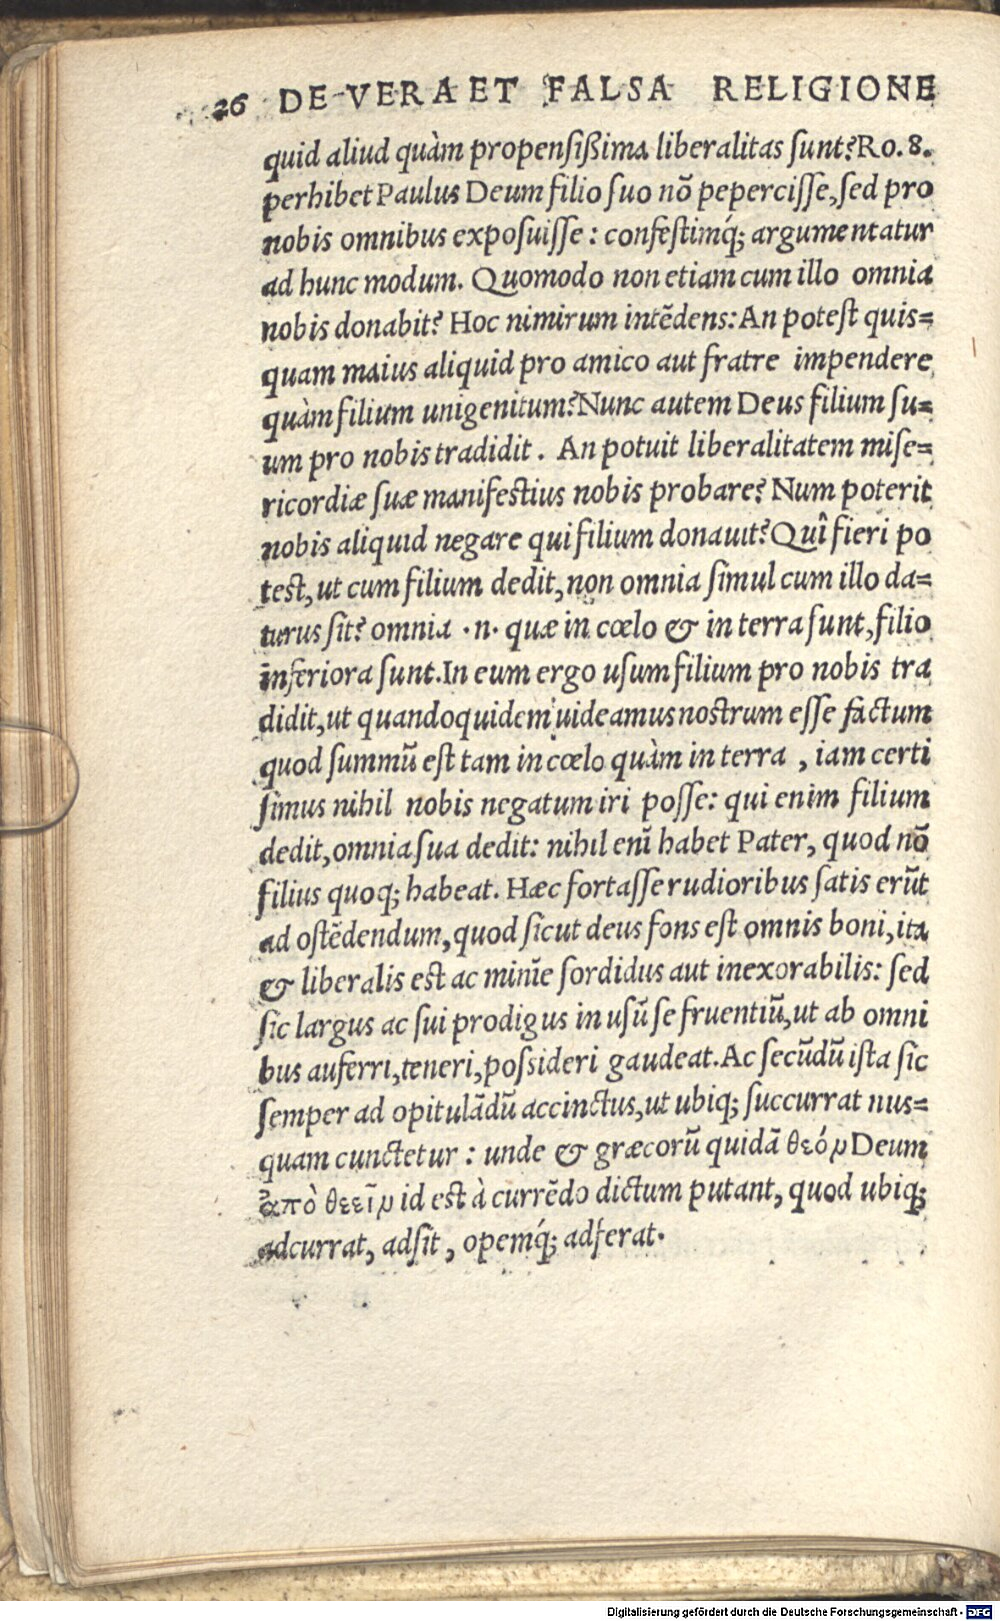 26 DE VERA ET FALSA RELIGIONE
quid aliud quàm propensißima liberalitas sunt? Ro. 8.
perhibet Paulus Deum filio suo nõ pepercisse, sed pro
nobis omnibus exposuisse: confestimq́; argumentatur
ad hunc modum. Quomodo non etiam cum illo omnia
nobis donabit? Hoc nimirum intẽdens: An potest quis=
quam maius aliquid pro amico aut fratre impendere
quàm filium unigenitum? Nunc autem Deus filium su=
um pro nobis tradidit. An potuit liberalitatem mise=
ricordiæ suæ manifestius nobis probare? Num poterit
nobis aliquid negare qui filium donauit? Quî fieri po
test, ut cum filium dedit, non omnia simul cum illo da=
turus sit? omnia .n. quæ in cœlo & in terra sunt, filio
inferiora sunt. In eum ergo usum filium pro nobis tra
didit, ut quandoquidem uideamus nostrum esse factum
quod summũ est tam in cœlo quàm in terra, iam certi
simus nihil nobis negatum iri posse: qui enim filium
dedit, omnia sua dedit: nihil enĩ habet Pater, quod nõ
filius quoq; habeat. Hæc fortasse rudioribus satis erũt
ad ostẽdendum, quod sicut deus fons est omnis boni, ita
& liberalis est ac minĩe sordidus aut inexorabilis: sed
sic largus ac sui prodigus in usũ se fruentiũ, ut ab omni
bus auferri, teneri, possideri gaudeat. Ac secũdũ ista sic
semper ad opitulãdũ accinctus, ut ubiq; succurrat nus=
quam cunctetur: unde & græcorũ quidã θεόν Deum
ἀπὸ θεεῖν id est à currẽdo dictum putant, quod ubiq;
adcurrat, adsit, opemq́; adferat.
Digitalisierung gefördert durch die Deutsche Forschungsgemeinschaft - DFG